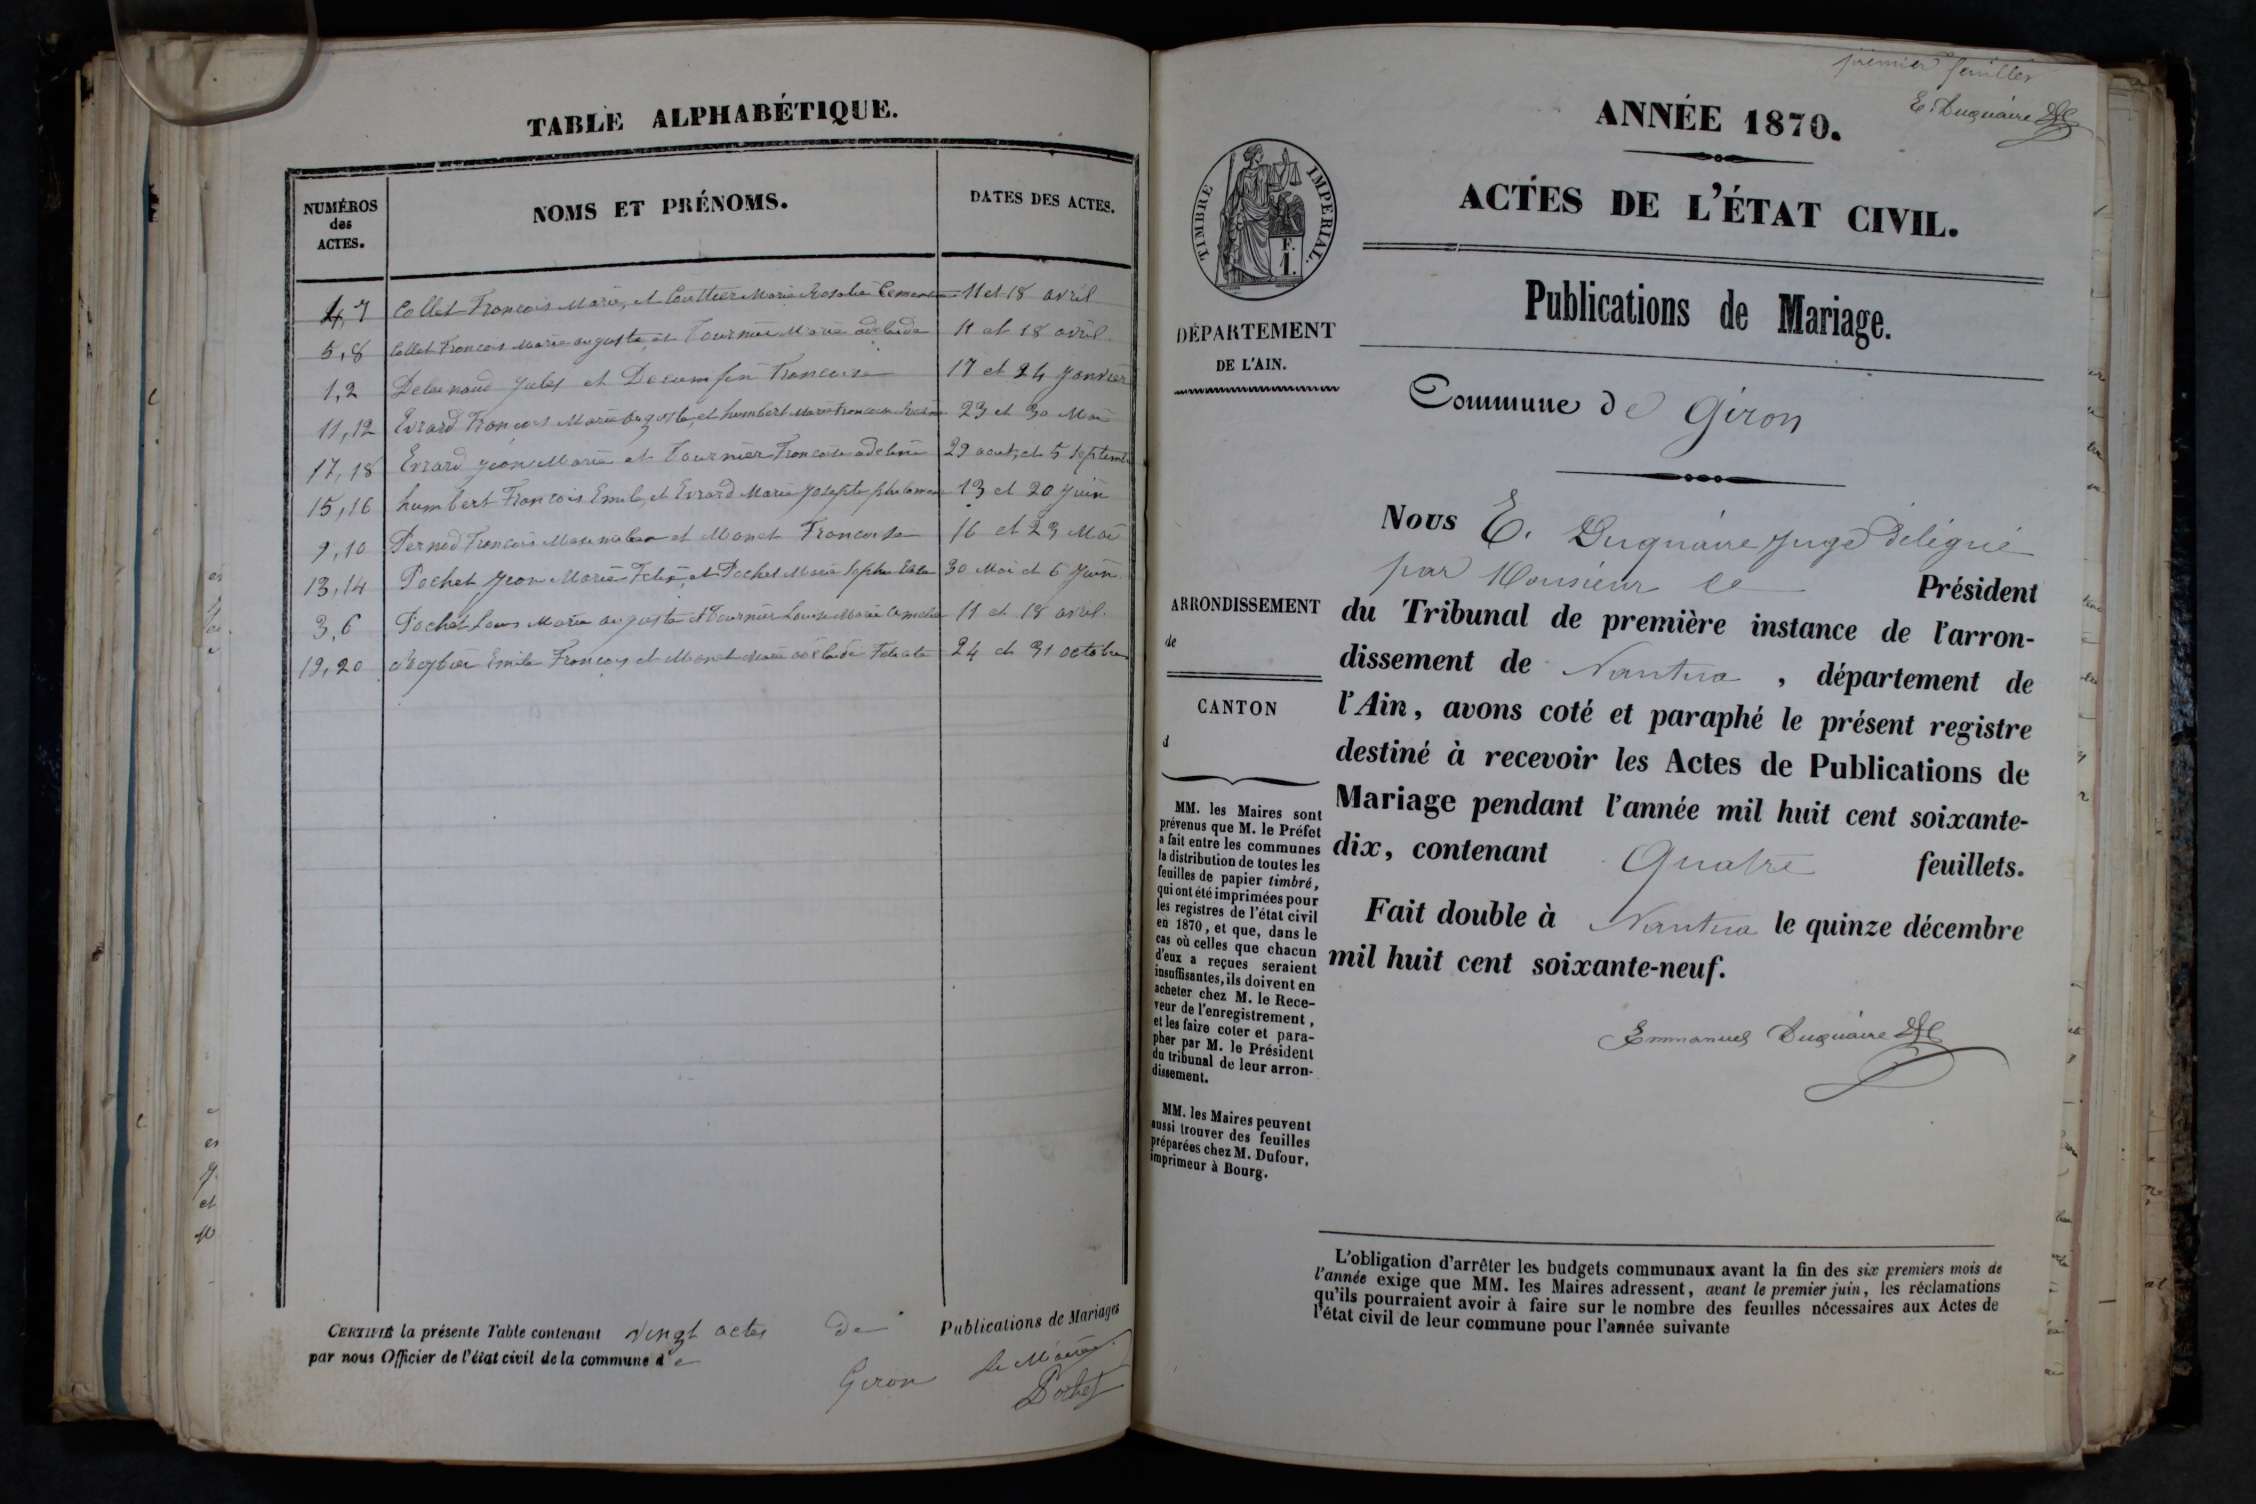 TABLE ALPHABÉTIQUE.
NUMÉROS
des
ACTES.
NOMS ET PRÉNOMS.
DATES DES ACTES.
4, 7 Collet François Marie, et Marie Rosalie 11 et 18 avril
5, 8 Collet François Marie auguste et Tournier Marie adelaide 11 et 18 avril
1, 2 Jules et Françoise 17 et 24 Janvier
11, 12 Evrard François Marie auguste, et humbert Marie 23 et 30 Mai
17, 18 Evrard Jean Marie et Tournier Françoise adeline 29 aout, et 5 septembre
15, 16 humbert François Emile, et Evrard Marie Josephte 13 et 20 Juin
9, 10 Pernod François et Monet Françoise 16 et 23 Mai
13, 14 Pochet Jean Marie Felix, et Pochet Marie Sophie 30 Mai et 6 Juin
3, 6 Pochet Louis Marie auguste et Tournier Louise Marie 11 et 18 avril.
19, 20 Emile François et Monet Marie 24 et 31 octobre
CERTIFIÉ la présente Table contenant vingt actes de Publications de Mariages
par nous Officier de l'état civil de la commune de
Giron Le Maire
Pochet
premier feuillet
E. Duquaire
ANNÉE 1870.
ACTES DE L'ÉTAT CIVIL.
TIMBRE IMPERIAL.
F.
1.
Publications de Mariage.
DÉPARTEMENT
DE L'AIN.
Commune de Giron
Nous E. Duquaire Juge délégué
par Monsieur le Président
du Tribunal de première instance de l'arron-
dissement de Nantua , département de
l'Ain, avons coté et paraphé le présent registre
destiné à recevoir les Actes de Publications de
Mariage pendant l'année mil huit cent soixante-
dix, contenant Quatre feuillets.
Fait double à Nantua le quinze décembre
mil huit cent soixante-neuf.
Emmanuel Duquaire
ARRONDISSEMENT
de
CANTON
d
MM. les Maires sont
prévenus que M. le Préfet
a fait entre les communes
la distribution de toutes les
feuilles de papier timbré,
qui ont été imprimées pour
les registres de l'état civil
en 1870, et que, dans le
cas où celles que chacun
d'eux a reçues seraient
insuffisantes, ils doivent en
acheter chez M. le Rece-
veur de l'enregistrement,
et les faire coter et para-
pher par M. le Président
du tribunal de leur arron-
dissement.
MM. les Maires peuvent
aussi trouver des feuilles
préparées chez M. Dufour,
imprimeur à Bourg.
L'obligation d'arrêter les budgets communaux avant la fin des six premiers mois de
l'année exige que MM. les Maires adressent, avant le premier juin, les réclamations
qu'ils pourraient avoir à faire sur le nombre des feuilles nécessaires aux Actes de
l'état civil de leur commune pour l'année suivante